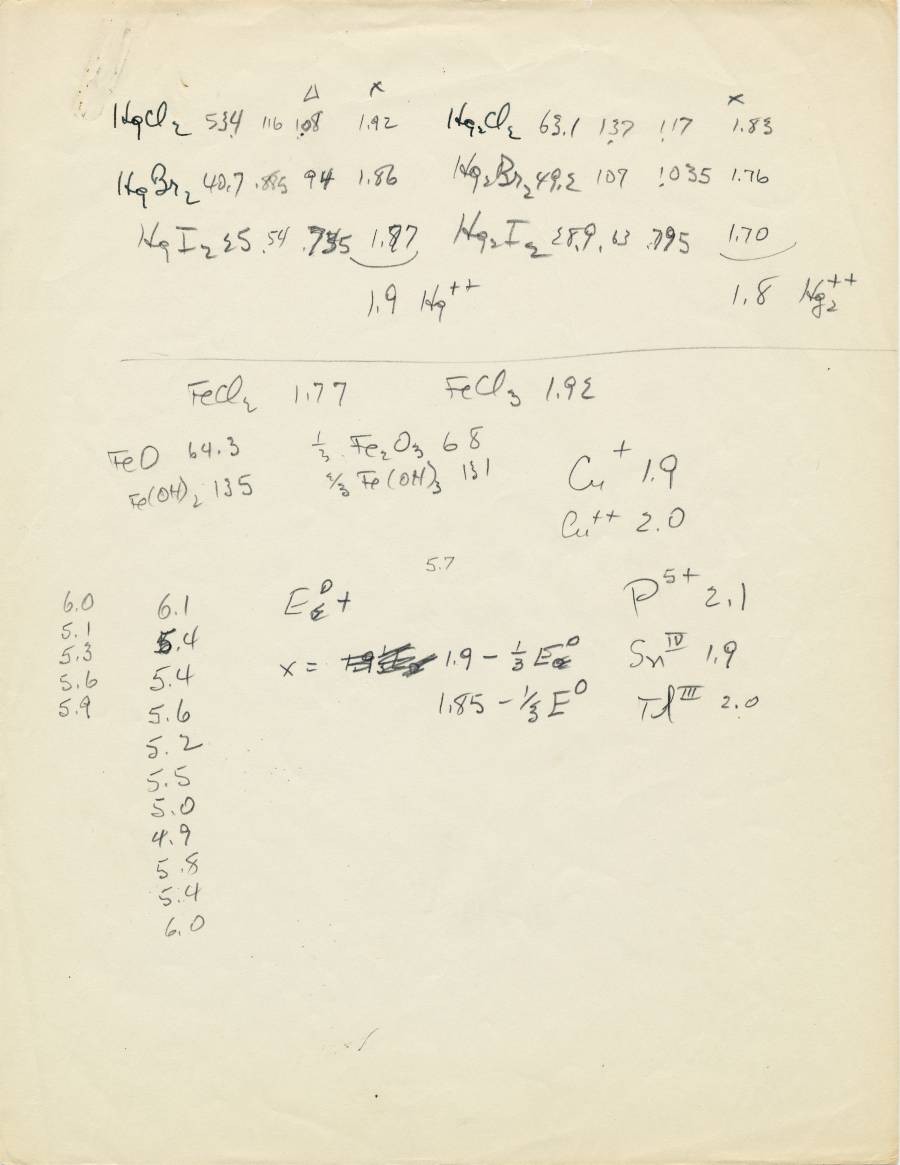 Δ x x
HgCl₂ 53.4 1.16 1.08 1.92 Hg₂Cl₂ 63.1 1.37 1.17 1.83
HgBr₂ 40.7 .885 .94 1.86 Hg₂Br₂ 49.2 1.07 1.035 1.76
HgI₂ 25 .54 .735 1.87 Hg₂I₂ 28.9 .63 .795 1.70
1.9 Hg⁺⁺ 1.8 Hg₂⁺⁺
FeCl₂ 1.77 FeCl₃ 1.92
FeO 64.3 ⅓ Fe₂O₃ 68
Fe(OH)₂ 135 ⅔ Fe(OH)₃ 131
Cu⁺ 1.9
Cu⁺⁺ 2.0
5.7
6.0 6.1 E⁰₂ + P⁵⁺ 2.1
5.1 5.4
5.3 5.4 x = 1.9 − ⅓ E⁰₂ Sn^IV 1.9
5.6 5.6 1.85 − ⅓ E⁰ Tl^III 2.0
5.9 5.2
5.5
5.0
4.9
5.8
5.4
6.0